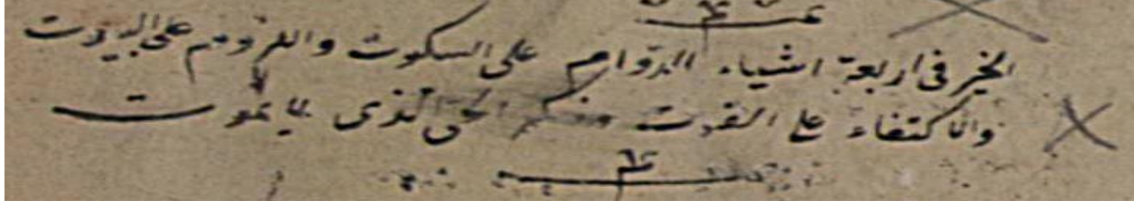 تم
الخير فى اربعة اشياء الدوام على السكوت واللزوم على البيوت
والاكتفاء على القوت وذكر الحى الذى لا يموت
تم